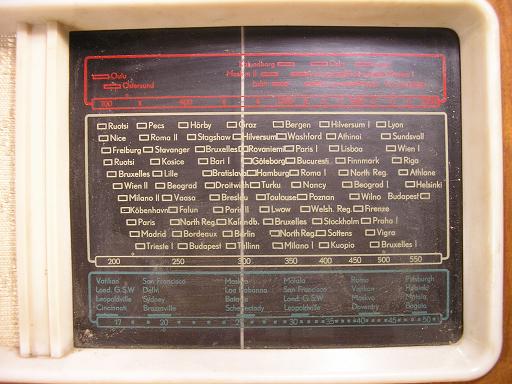 Kalundborg Oslo
Motala II
Oulu
Östersund Lahti
700 400
Ruotsi Pecs Hörby Graz Bergen Hilversum I Lyon
Nice Roma II Stagshaw Hilversum Washford Athinai Sundsvall
Freiburg Stavanger Bruxelles Rovaniemi Paris I Lisboa Wien I
Ruotsi Kosice Bari I Göteborg Bucuresti Finnmark Riga
Bruxelles Lille Bratislava Hamburg Roma I North Reg. Athlone
Wien II Beograd Droitwich Turku Nancy Beograd I Helsinki
Milano II Vaasa Breslau Toulouse Poznan Wilno Budapest
Köbenhavn Falun Paris II Lwow Welsh. Reg. Firenze
Paris North Reg. Kalundb. Bruxelles Stockholm Praha I
Madrid Bordeaux Berlin North Reg. Sottens Vigra
Trieste I Budapest Tallinn Milano I Kuopio Bruxelles I
200 250 300 400 450 500 550
Vatikan San Francisco Moskva Motala Roma Pittsburgh
Lond. G.S.W Delhi Los Habanna San Francisco Vatikan Helsinki
Leopoldville Sydney Batavia Lond. G.S.W Moskva Motala
Cincinati Brazzaville Schenectady Leopoldville Daventry Bogota
17 20 25 30 35 40 45 50